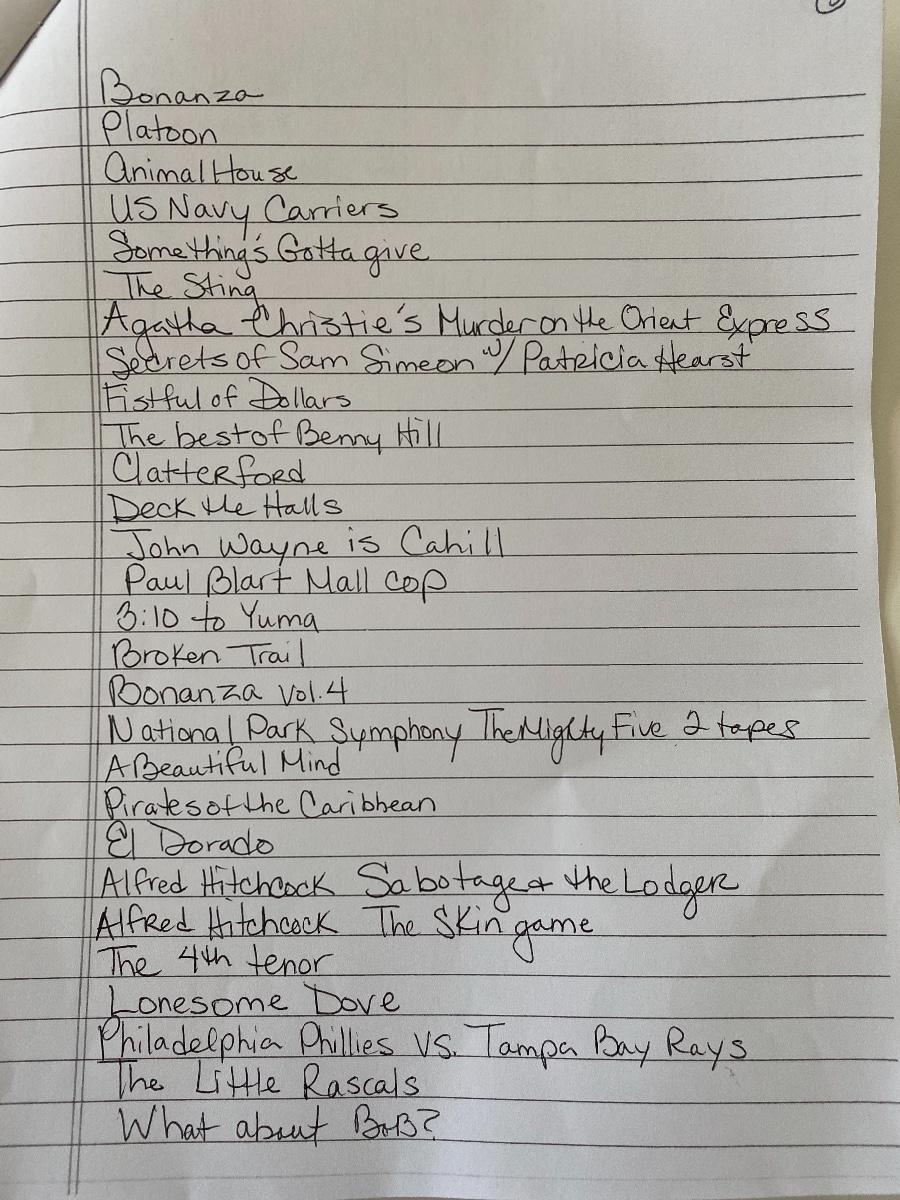 Bonanza
Platoon
Animal House
US Navy Carriers
Something's Gotta give
The Sting
Agatha Christie's Murder on the Orient Express
Secrets of Sam Simeon w/ Patricia Hearst
Fistful of Dollars
The best of Benny Hill
Clatterford
Deck the Halls
John Wayne is Cahill
Paul Blart Mall cop
3:10 to Yuma
Broken Trail
Bonanza vol. 4
National Park Symphony The Mighty Five 2 tapes
A Beautiful Mind
Pirates of the Caribbean
El Dorado
Alfred Hitchcock Sabotage + the Lodger
Alfred Hitchcock The Skin game
The 4th tenor
Lonesome Dove
Philadelphia Phillies VS. Tampa Bay Rays
The Little Rascals
What about BoB?